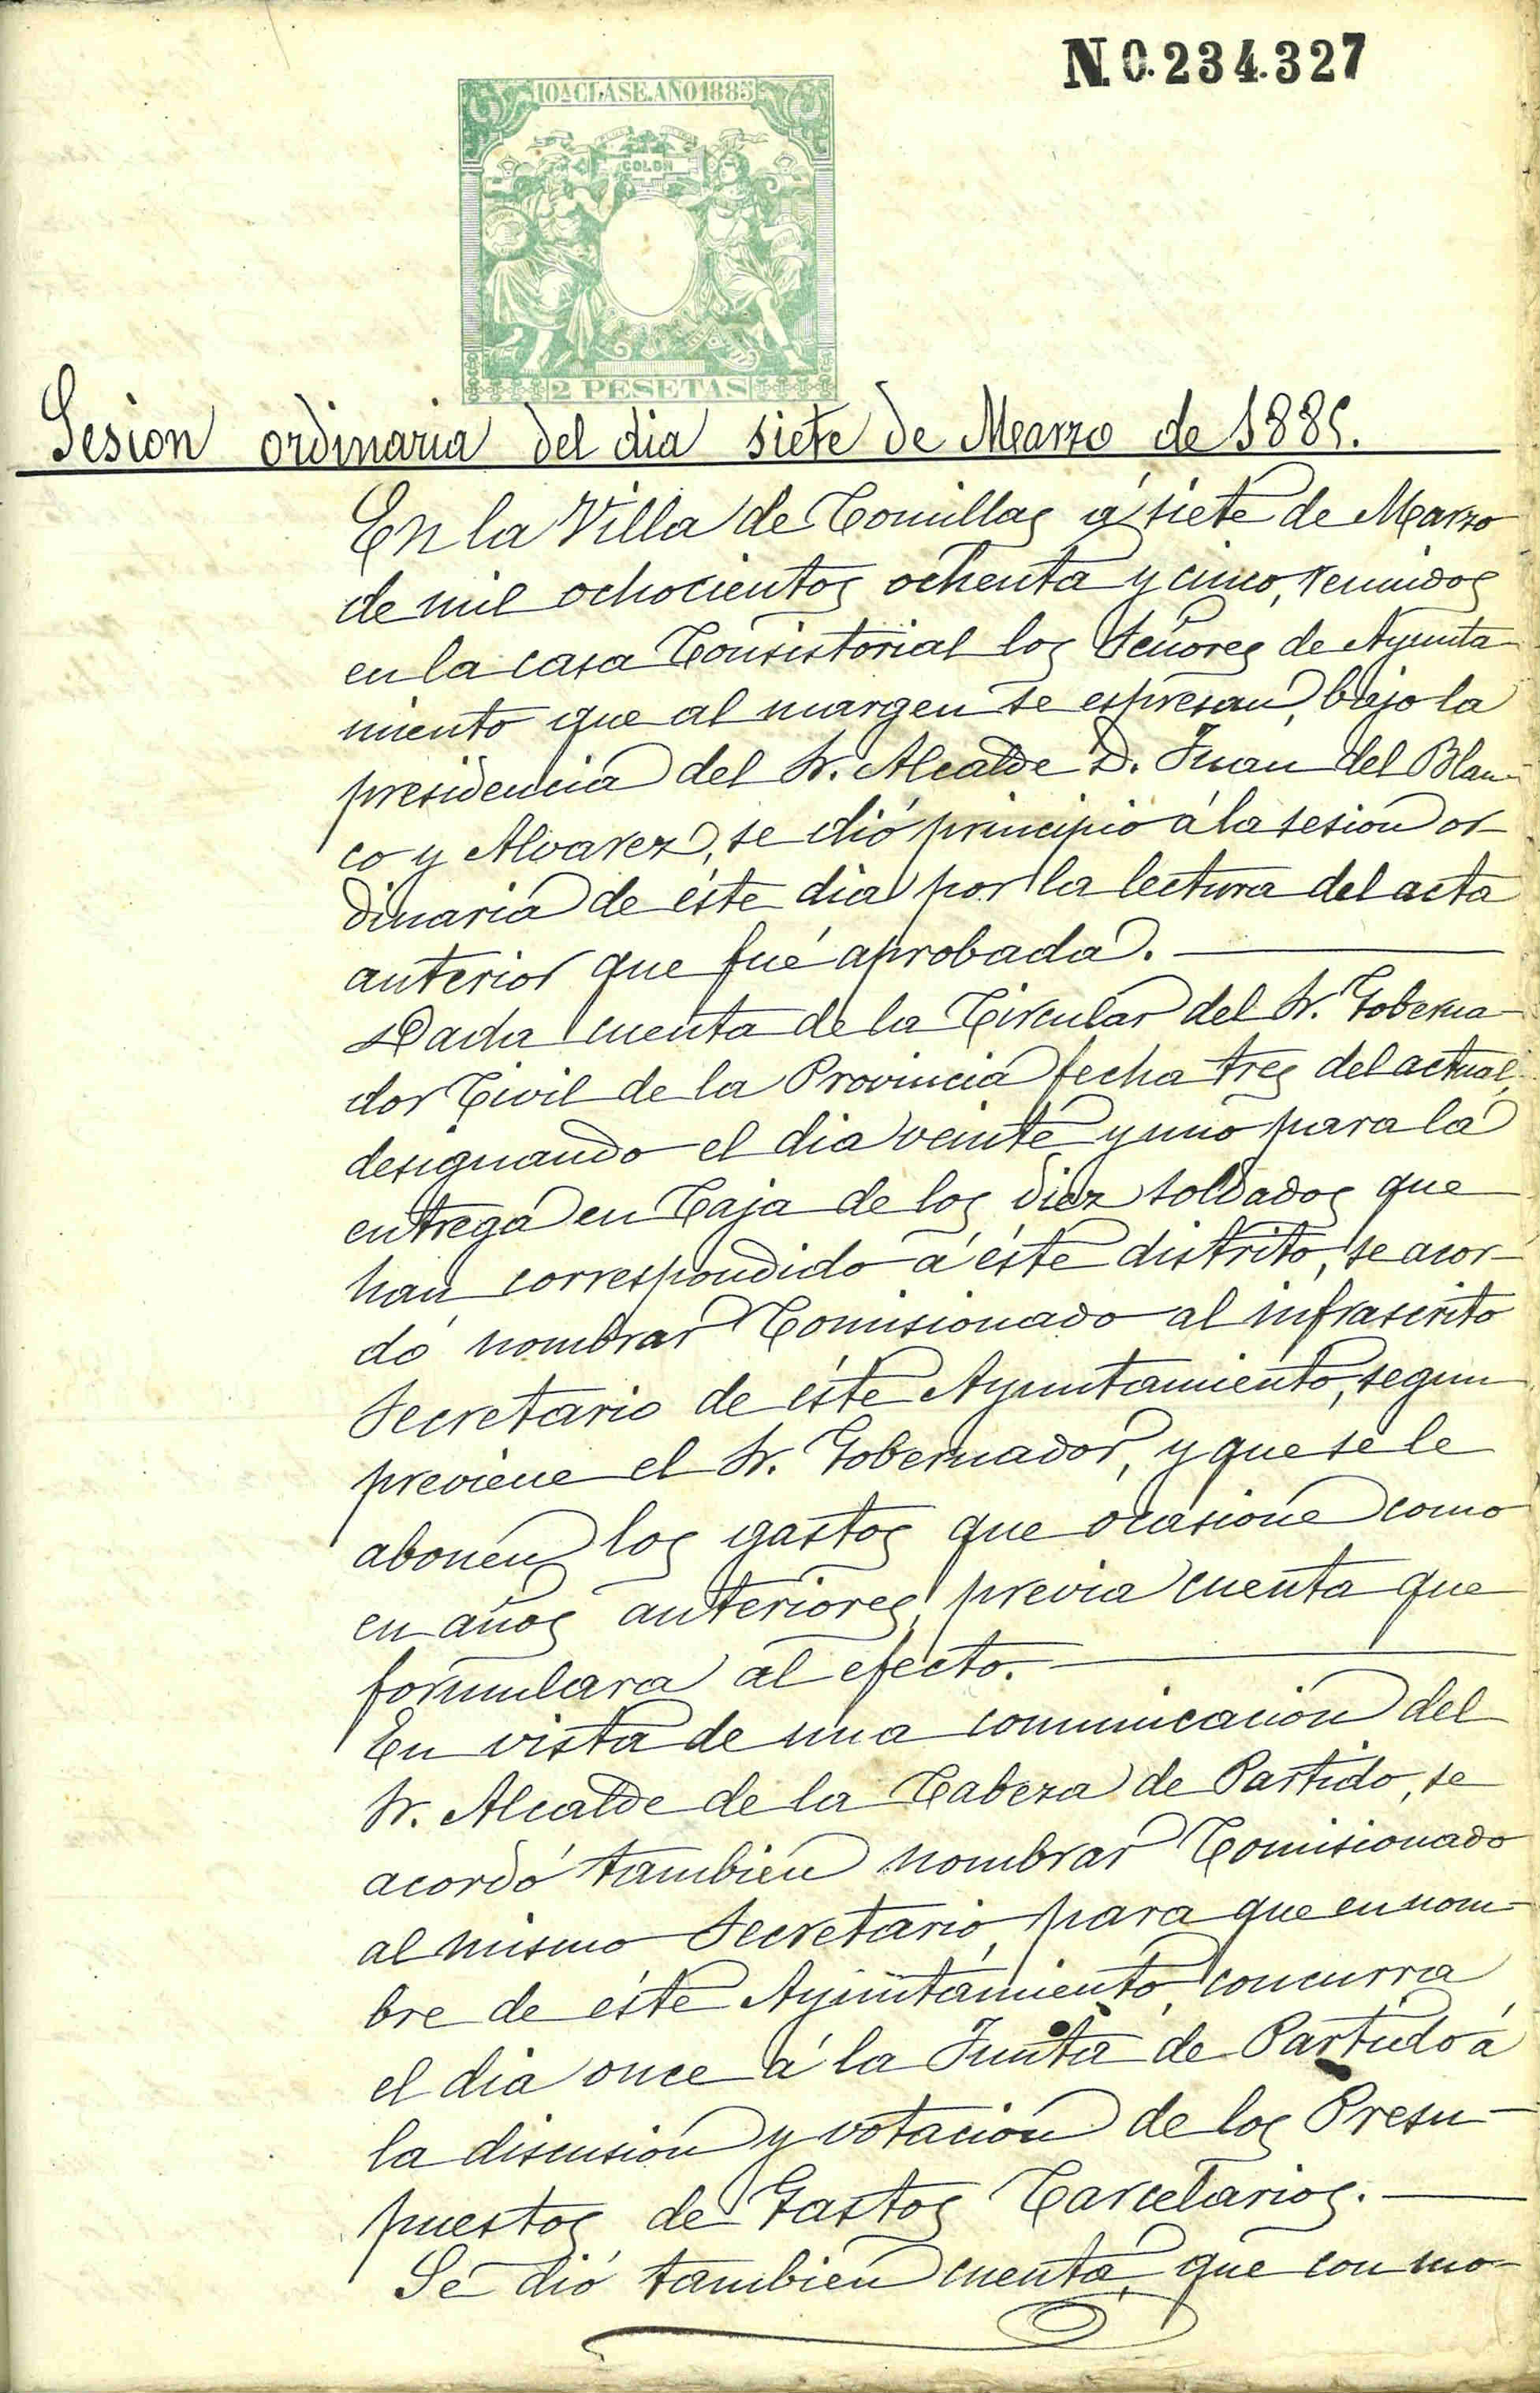 N.0.234.327
10ª CLASE. AÑO 1885
COLON
2 PESETAS
Sesion ordinaria del dia siete de Marzo de 1885.
En la Villa de Comillas á siete de Marzo
de mil ochocientos ochenta y cinco, reunidos
en la casa Consistorial los Señores de Ayunta-
miento que al margen se espresan, bajo la
presidencia del Sr. Alcalde D. Juan del Blan-
co y Alvarez, se dió principio á la sesion or-
dinaria de éste dia por la lectura del acta
anterior que fué aprobada.
Dada cuenta de la Circular del Sr. Goberna-
dor Civil de la Provincia fecha tres del actual,
designando el dia veinte y uno para la
entrega en Caja de los diez soldados que
han correspondido á éste distrito, se acor-
dó nombrar Comisionado al infrascrito
Secretario de éste Ayuntamiento, segun
previene el Sr. Gobernador, y que se le
abonen los gastos que ocasione como
en años anteriores, previa cuenta que
formulara al efecto.
En vista de una comunicacion del
Sr. Alcalde de la Cabeza de Partido, se
acordó tambien nombrar Comisionado
al mismo Secretario, para que en nom-
bre de éste Ayuntamiento, concurra
el dia once á la Junta de Partido á
la discusion y votacion de los Presu-
puestos de Gastos Carcelarios.
Se dió tambien cuenta, que con mo-